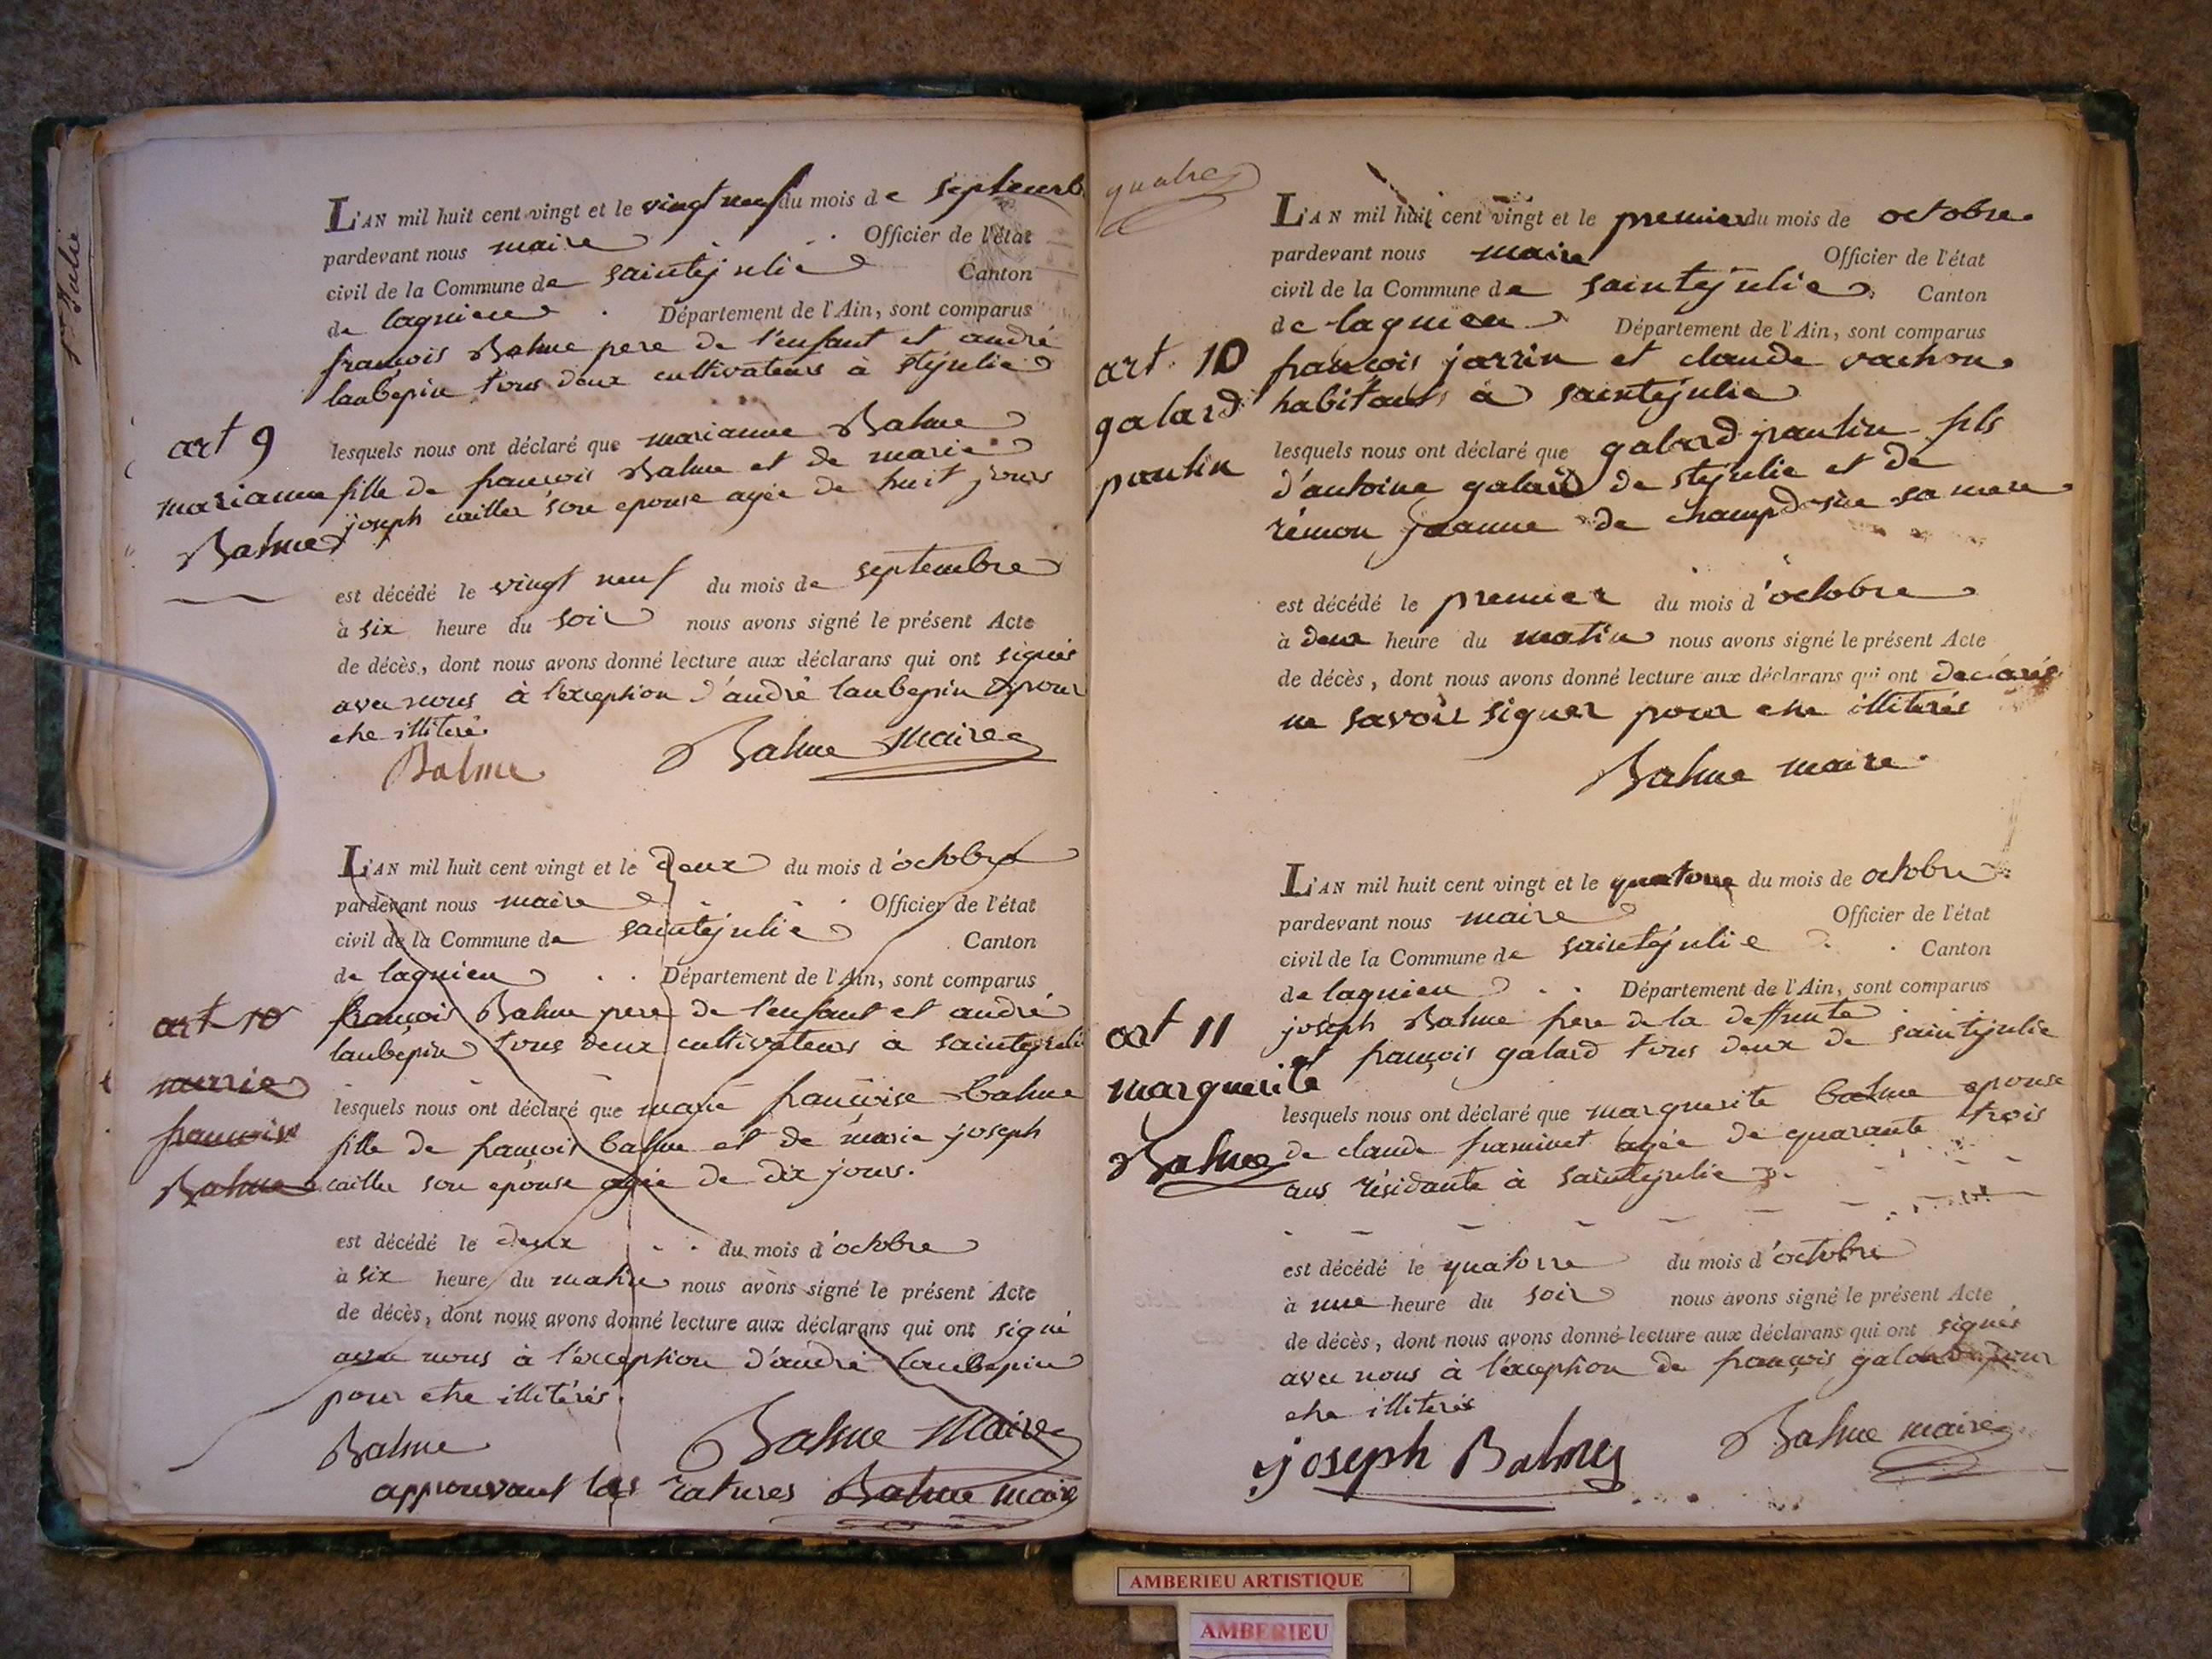 Ste Julie
L'AN mil huit cent vingt et le vingt neuf du mois de septemb
pardevant nous maire Officier de l'état
civil de la Commune de saintejulie Canton
de lagnieu Département de l'Ain, sont comparus
françois Balme pere de l'enfant et andré
laubepin tous deux cultivateurs à stejulie
art 9
marianne
Balme
lesquels nous ont déclaré que marianne Balme
fille de françois Balme et de marie
joseph cailler son epouse agée de huit jours
est décédé le vingt neuf du mois de septembre
à six heure du soir nous avons signé le présent Acte
de décès, dont nous avons donné lecture aux déclarans qui ont signés
avec nous à l'exception d'andré laubepin pour
etre illiteré.
Balme Balme Maire
L'AN mil huit cent vingt et le deux du mois d'octobre
pardevant nous maire Officier de l'état
civil de la Commune de saintejulie Canton
de lagnieu Département de l'Ain, sont comparus
françois Balme pere de l'enfant et andré
laubepin tous deux cultivateurs a saintejulie
art 10
marie
françoise
Balme
lesquels nous ont déclaré que marie françoise balme
fille de françois balme et de marie joseph
cailler son epouse agée de dix jours.
est décédé le deux du mois d'octobre
à six heure du matin nous avons signé le présent Acte
de décès, dont nous avons donné lecture aux déclarans qui ont signé
avec nous à l'exception d'andré laubepin
pour etre illitérés.
Balme Balme Maire
approuvant les ratures Balme maire
quatre
L'AN mil huit cent vingt et le premier du mois de octobre
pardevant nous maire Officier de l'état
civil de la Commune de saintejulie Canton
de lagnieu Département de l'Ain, sont comparus
françois jarrin et claude vachon
habitants à saintejulie
art 10
galard
paulin
lesquels nous ont déclaré que galard paulin fils
d'antoine galard de stejulie et de
rémon jeanne de champdosne sa mere
est décédé le premier du mois d'octobre
à deux heure du matin nous avons signé le présent Acte
de décès, dont nous avons donné lecture aux déclarans qui ont declarés
ne savoir signer pour etre illiterés
Balme maire.
L'AN mil huit cent vingt et le quatorze du mois de octobre
pardevant nous maire Officier de l'état
civil de la Commune de saintejulie Canton
de lagnieu Département de l'Ain, sont comparus
joseph Balme frere de la deffunte
et françois galard tous deux de saintejulie
art 11
marguerite
Balme
lesquels nous ont déclaré que marguerite balme epouse
de claude framinet agée de quarante trois
ans résidante à saintejulie
est décédé le quatorze du mois d'octobre
à une heure du soir nous avons signé le présent Acte
de décès, dont nous avons donné lecture aux déclarans qui ont signés
avec nous à l'exception de françois galard pour
etre illiterés
joseph Balme Balme maire
AMBERIEU ARTISTIQUE
AMBERIEU